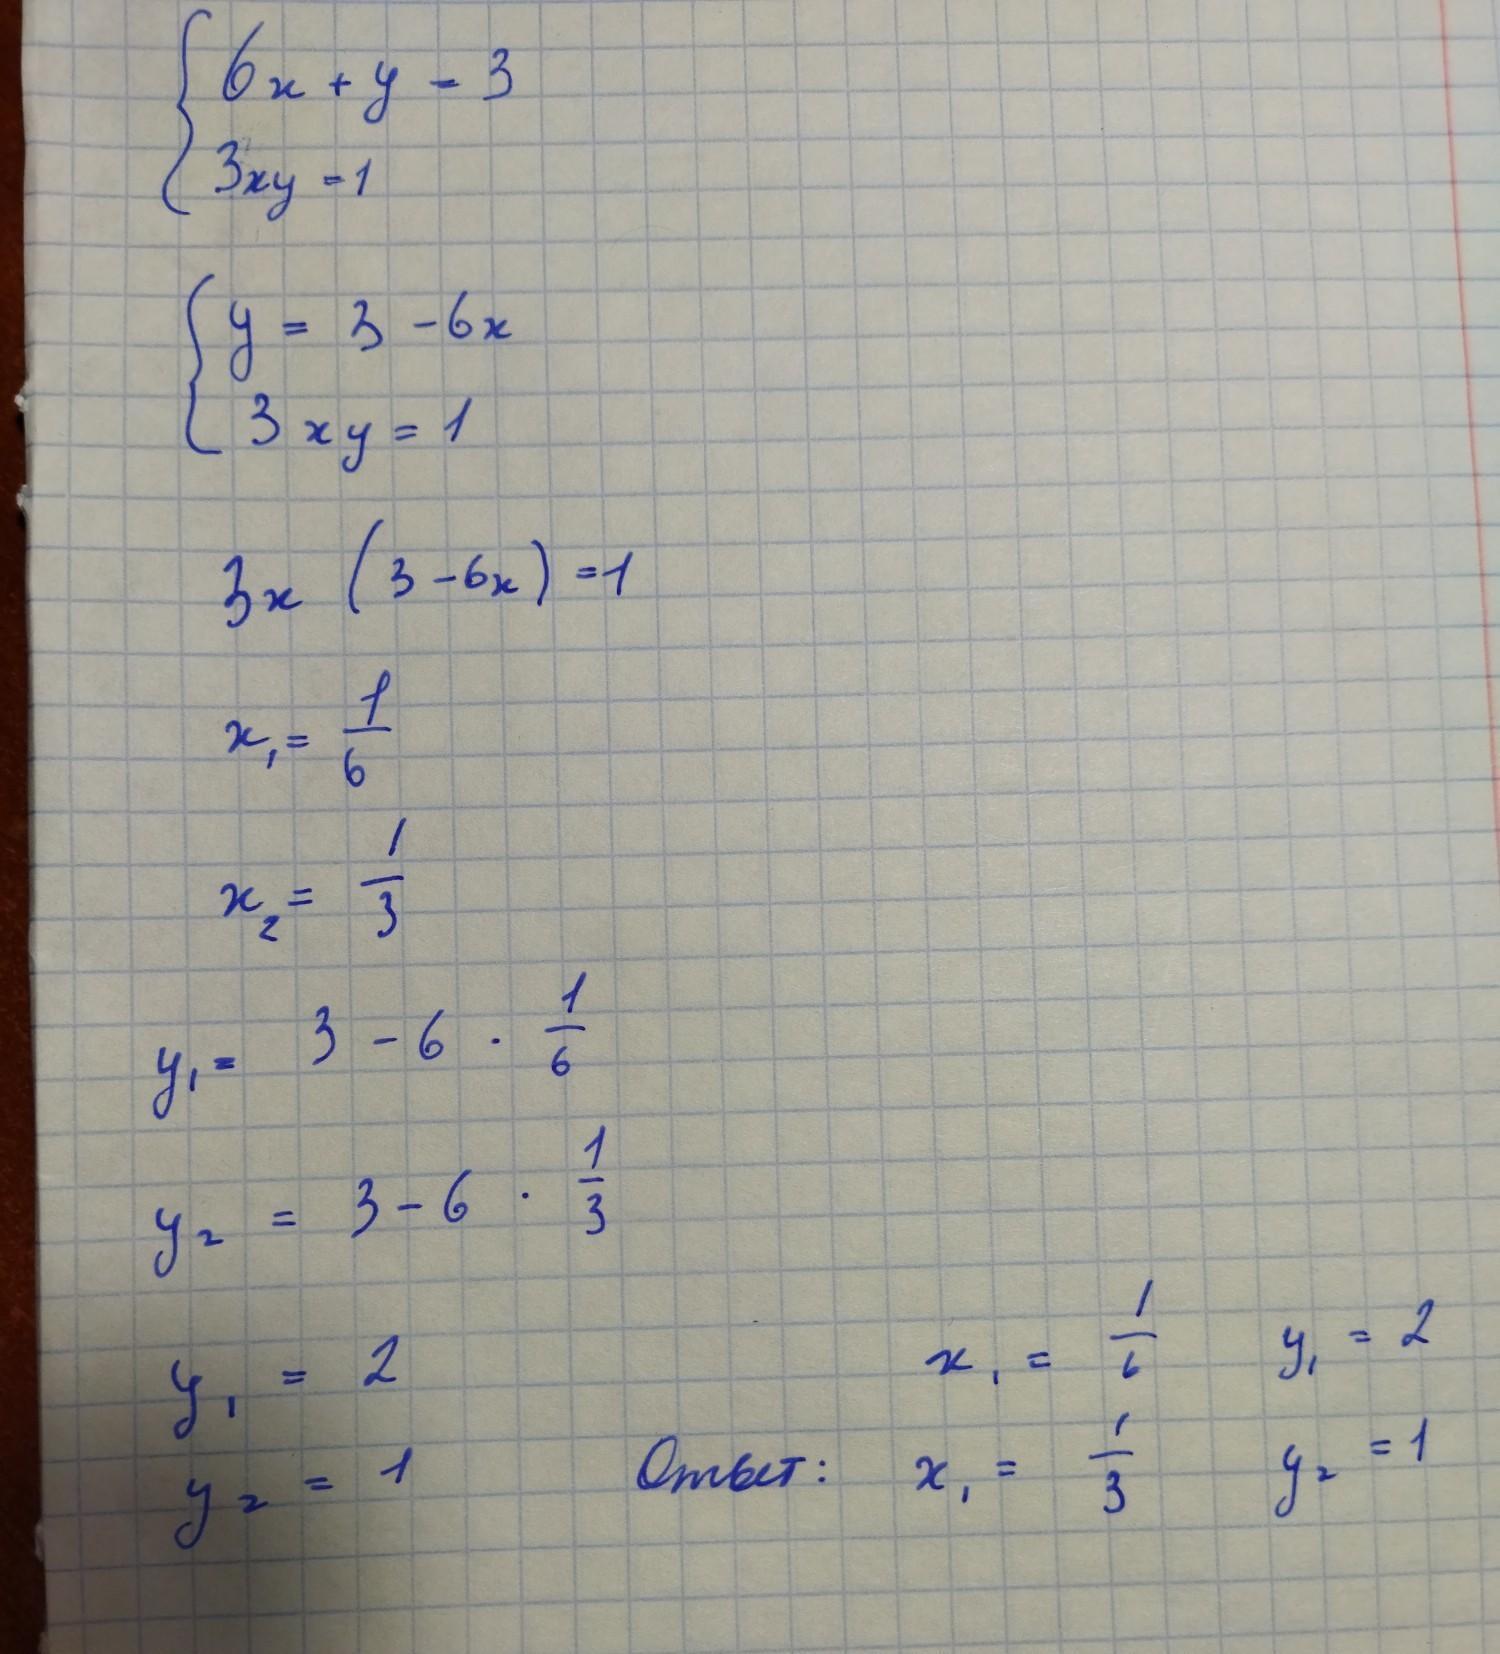 6x + y = 3
3xy = 1
y = 3 - 6x
3xy = 1
3x (3 - 6x) = 1
x₁ = 1/6
x₂ = 1/3
y₁ = 3 - 6 · 1/6
y₂ = 3 - 6 · 1/3
y₁ = 2
y₂ = 1
x₁ = 1/6 y₁ = 2
Ответ: x₁ = 1/3 y₂ = 1